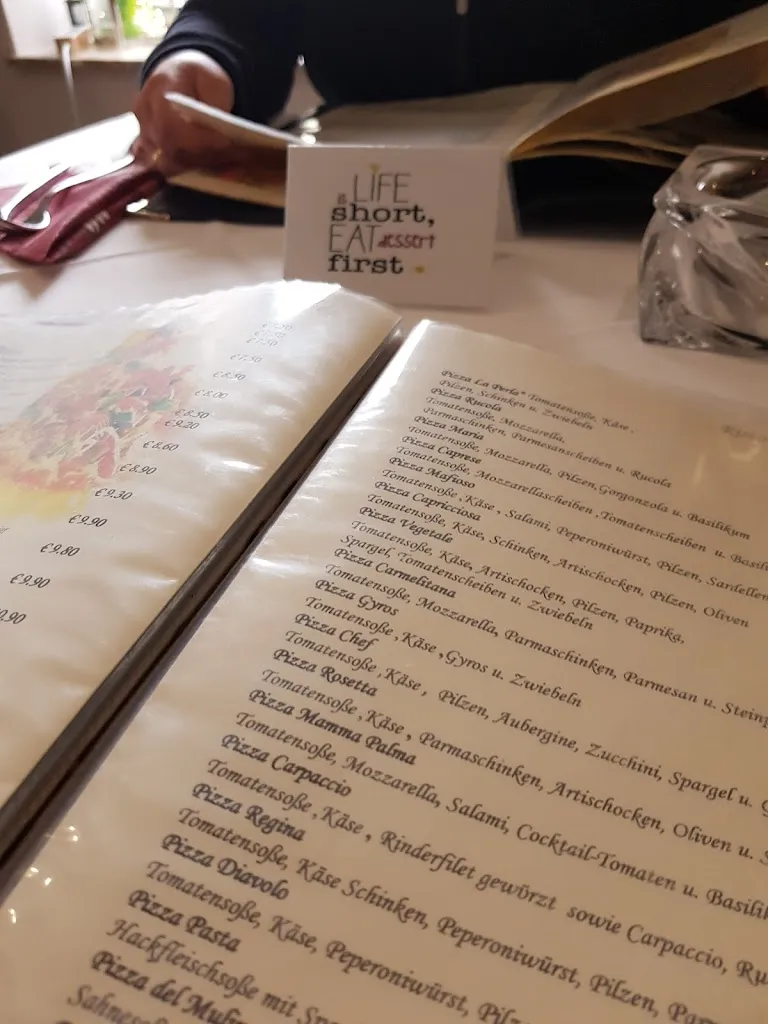 is LIFE
short,
EAT dessert
first
€7.50
€8.50
€8.00
€8.50
€9.20
€8.60
€8.90
€9.30
€9.90
€9.80
€9.90
Pizza La Perla* Tomatensoße, Käse,
Pilzen, Schinken u. Zwiebeln
Pizza Rucola
Tomatensoße, Mozzarella,
Parmaschinken, Parmesanscheiben u. Rucola
Pizza Maria
Tomatensoße, Mozzarella, Pilzen, Gorgonzola u. Basilikum
Pizza Caprese
Tomatensoße, Mozzarellascheiben ,Tomatenscheiben u. Basili
Pizza Mafioso
Tomatensoße ,Käse , Salami, Peperoniwürst, Pilzen, Sardellen
Pizza Capricciosa
Tomatensoße, Käse, Schinken, Artischocken, Pilzen, Oliven
Pizza Vegetale
Tomatensoße, Käse, Artischocken, Pilzen, Paprika,
Spargel, Tomatenscheiben u. Zwiebeln
Pizza Carmelitana
Tomatensoße, Mozzarella, Parmaschinken, Parmesan u. Steinp
Pizza Gyros
Tomatensoße ,Käse ,Gyros u. Zwiebeln
Pizza Chef
Tomatensoße ,Käse , Pilzen, Aubergine, Zucchini, Spargel u.
Pizza Rosetta
Tomatensoße ,Käse , Parmaschinken, Artischocken, Oliven u.
Pizza Mamma Palma
Tomatensoße, Mozzarella, Salami, Cocktail-Tomaten u. Basilik
Pizza Carpaccio
Tomatensoße ,Käse , Rinderfilet gewürzt sowie Carpaccio, Ru
Pizza Regina
Tomatensoße, Käse Schinken, Peperoniwürst, Pilzen, Pap
Pizza Diavolo
Tomatensoße, Käse, Peperoniwürst, Pilz
Pizza Pasta
Hackfleischsoße mit Spa
Pizza del Mulin
Sahneso